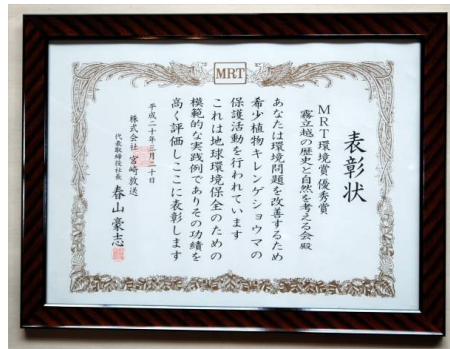 MRT
表彰状
MRT環境賞優秀賞
霧立越の歴史と自然を考える会殿
あなたは環境問題を改善するため
希少植物キレンゲショウマの
保護活動を行われています
これは地球環境保全のための
模範的な実践例でありその功績を
高く評価しここに表彰します
平成二十年三月二十日
株式会社 宮崎放送
代表取締役社長 春山豪志